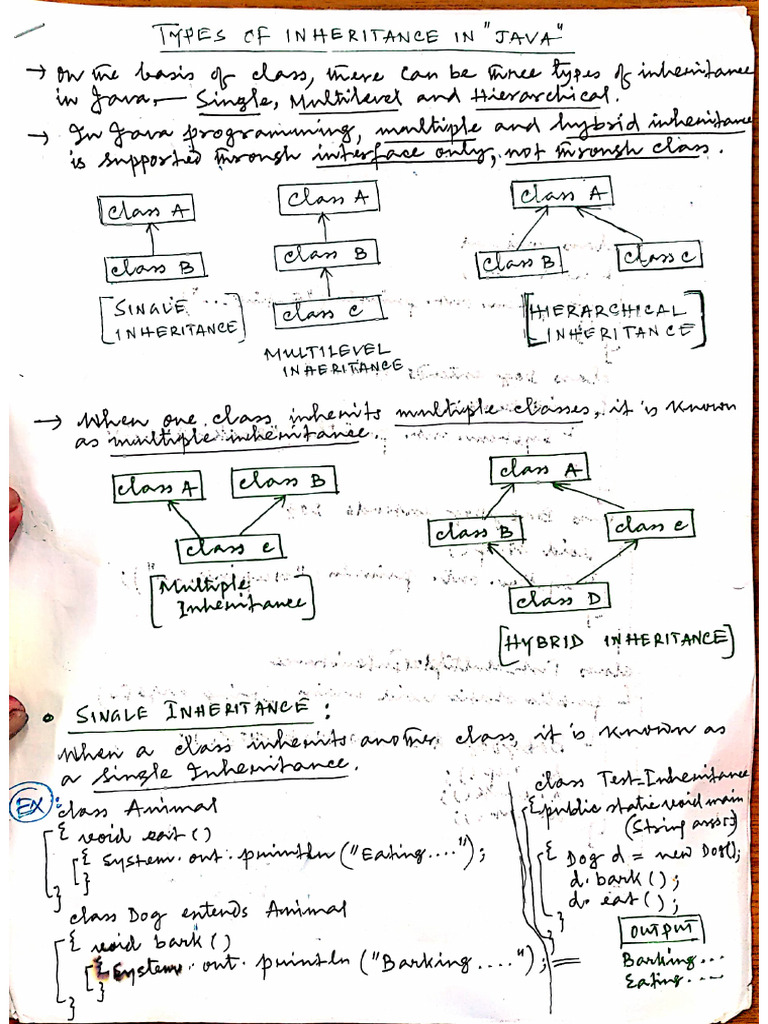 TYPES OF INHERITANCE IN "JAVA"
→ On the basis of class, there can be three types of inheritance
in Java, — Single, Multilevel and Hierarchical.
→ In Java programming, multiple and hybrid inheritance
is supported through interface only, not through class.
class A
class B
[SINGLE
INHERITANCE]
class A
class B
class C
MULTILEVEL
INHERITANCE
class A
class B
class C
[HIERARCHICAL
INHERITANCE]
→ When one class inherits multiple classes, it is known
as multiple inheritance.
class A
class B
class C
[Multiple
Inheritance]
class A
class B
class C
class D
[HYBRID INHERITANCE]
• SINGLE INHERITANCE :
When a class inherits another class, it is known as
a Single Inheritance.
EX :
class Animal
{ void eat()
{ System.out.println("Eating....");
}
}
class Dog extends Animal
{ void bark()
{ System.out.println("Barking....");
}
}
class Test_Inheritance
{ public static void main
(String args[])
{ Dog d = new Dog();
d.bark();
d.eat();
}
}
OUTPUT
Barking...
Eating....